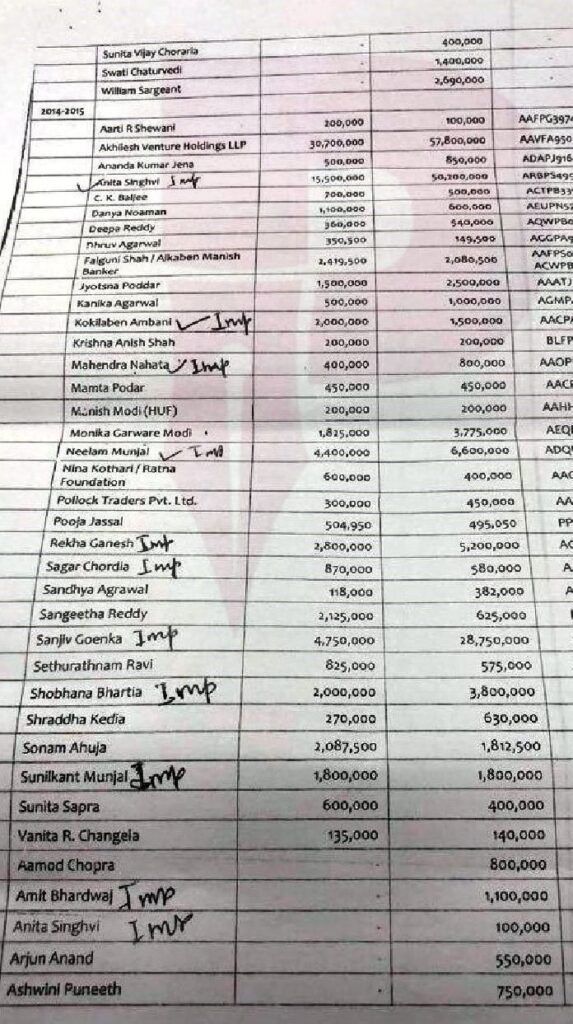 Sunita Vijay Choraria - 400,000 -
Swati Chaturvedi - 1,400,000 -
William Sargeant - 2,690,000 -
2014-2015
Aarti R Shewani 200,000 100,000 AAFPG3974
Akhilesh Venture Holdings LLP 30,700,000 57,800,000 AAVFA950
Ananda Kumar Jena 500,000 850,000 ADAPJ916
✓ Anita Singhvi Imp 15,500,000 50,200,000 ARBPS495
C. K. Baljee 700,000 500,000 ACTPB33
Danya Noaman 1,100,000 600,000 AEUPN5
Deepa Reddy 360,000 540,000 AQWPB
Dhruv Agarwal 350,500 149,500 AGGPA
Falguni Shah / Alkaben Manish 2,419,500 2,080,500 AAFPS
Banker ACWPB
Jyotsna Poddar 1,500,000 2,500,000 AAATJ
Kanika Agarwal 500,000 1,000,000 AGMP
Kokilaben Ambani ✓ Imp 2,000,000 1,500,000 AACP
Krishna Anish Shah 200,000 200,000 BLFP
Mahendra Nahata ✓ Imp 400,000 800,000 AAOP
Mamta Podar 450,000 450,000 AAC
Manish Modi (HUF) 200,000 200,000 AAH
Monika Garware Modi 1,825,000 3,775,000 AEQ
Neelam Munjal ✓ Imp 4,400,000 6,600,000 ADQ
Nina Kothari / Ratna 600,000 400,000 AAC
Foundation
Pollock Traders Pvt. Ltd. 300,000 450,000 AA
Pooja Jassal 504,950 495,050 PP
Rekha Ganesh Imp 2,800,000 5,200,000
Sagar Chordia Imp 870,000 580,000 A
Sandhya Agrawal 118,000 382,000
Sangeetha Reddy 2,125,000 625,000
Sanjiv Goenka Imp 4,750,000 28,750,000
Sethurathnam Ravi 825,000 575,000
Shobhana Bhartia Imp 2,000,000 3,800,000
Shraddha Kedia 270,000 630,000
Sonam Ahuja 2,087,500 1,812,500
Sunilkant Munjal Imp 1,800,000 1,800,000
Sunita Sapra 600,000 400,000
Vanita R. Changela 135,000 140,000
Aamod Chopra - 800,000
Amit Bhardwaj Imp - 1,100,000
Anita Singhvi Imp - 100,000
Arjun Anand - 550,000
Ashwini Puneeth - 750,000